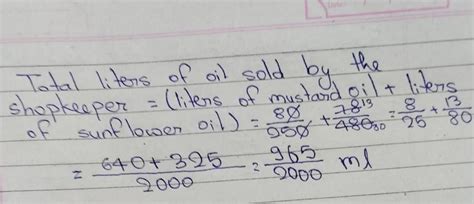 Total liters of oil sold by the
shopkeeper = (liters of mustard oil + liters
of sunflower oil) = 80/250 + 78 13/480 80 = 8/25 + 13/80
= 640+325/2000 = 965/2000 ml